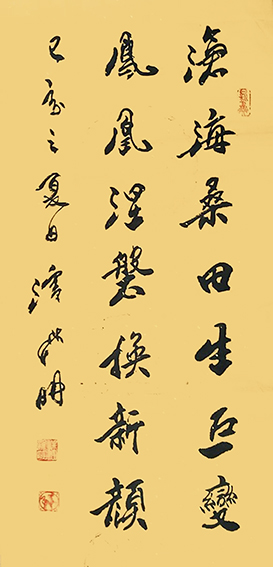 滄海桑田生巨變
鳳凰涅槃換新顔
己亥之夏日